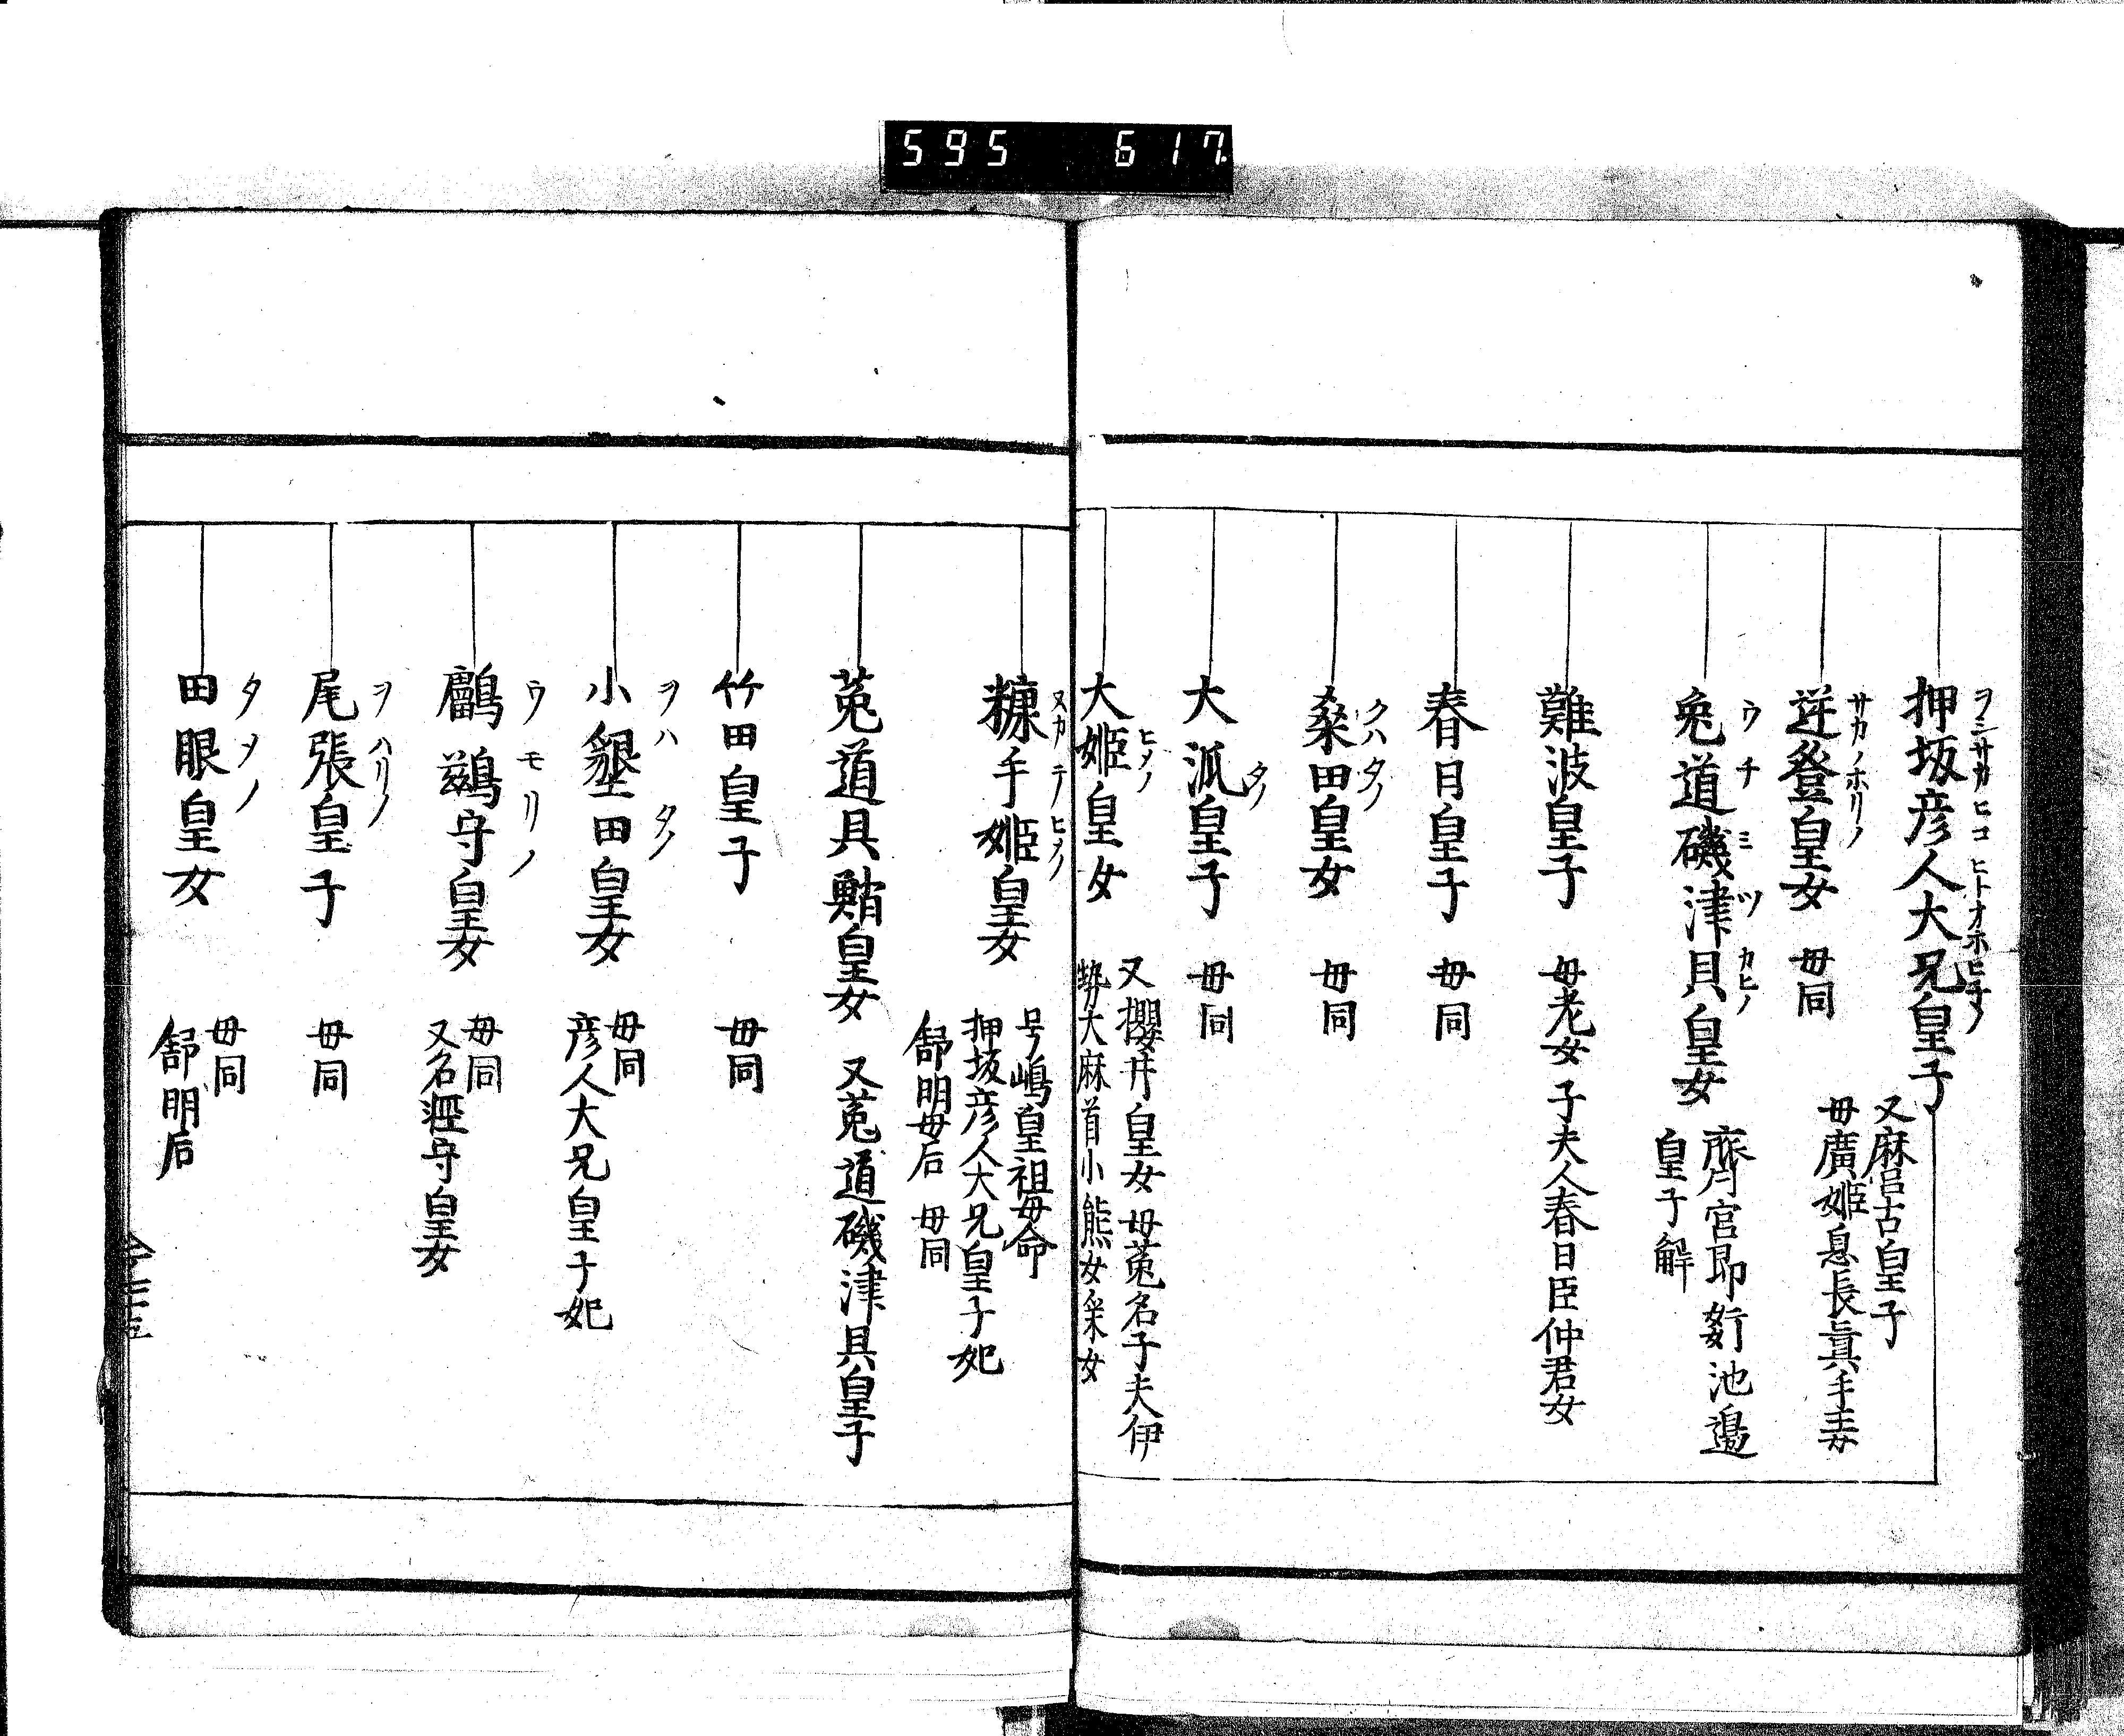 595 617
押坂彦人大兄皇子
ヲミサカヒコヒトオホヒ子ノ
又麻呂古皇子
母廣姬息長眞手王女
逆登皇女 母同
サカノホリノ
兔道磯津貝皇女
ウチミツカヒノ
齊官即
池邊
皇子解
難波皇子 母老女子夫人春日臣仲君女
春日皇子 母同
桑田皇女 母同
クハタノ
大派皇子 母同
タノ
大姬皇女
ヒメノ
又櫻井皇女 母菟名子夫伊
勢大麻首小熊女采女
糠手姬皇女
ヌカテヒメノ
号嶋皇祖母命
押坂彦人大兄皇子妃
舒明母后 母同
菟道具鮹皇女 又菟道磯津具皇子
竹田皇子 母同
小墾田皇女
ヲハタノ
母同
彦人大兄皇子妃
鸕鷀守皇女
ウモリノ
母同
又名輕守皇女
尾張皇子 母同
ヲハリノ
田眼皇女
タメノ
母同
舒明后